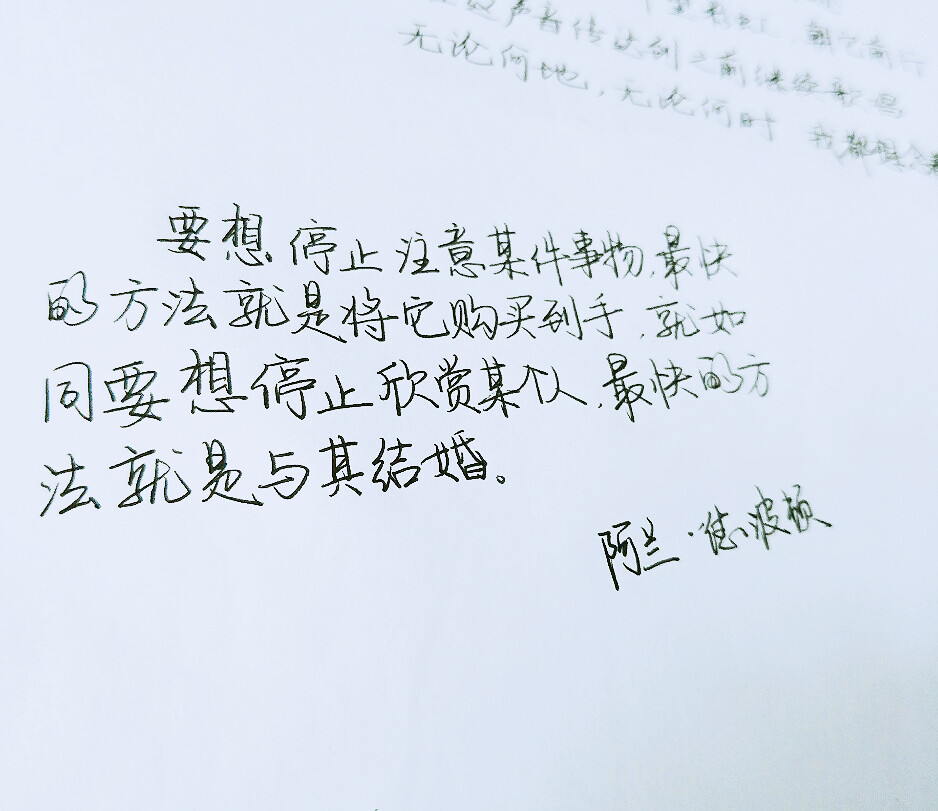 无论何地，无论何时 我都
要想停止注意某件事物，最快
的方法就是将它购买到手，就如
同要想停止欣赏某个人，最快的方
法就是与其结婚。
阿兰·德波顿